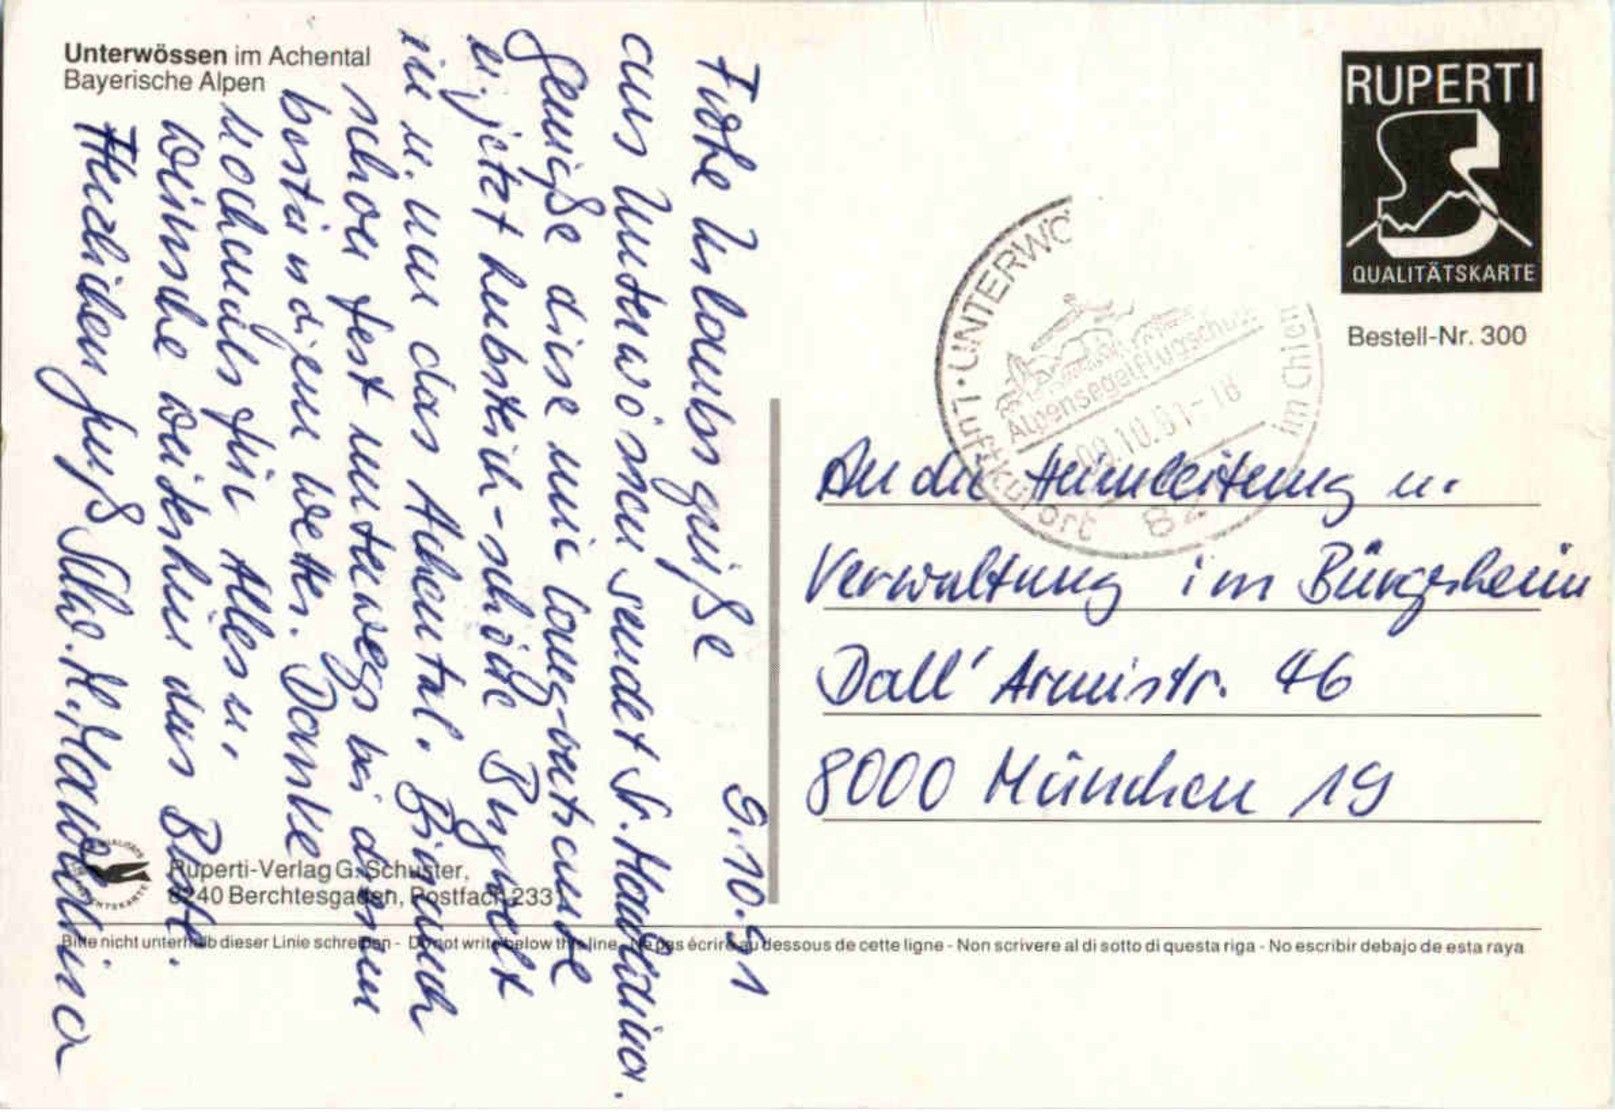 Unterwössen im Achental
Bayerische Alpen
9.10.91
Frohe Urlaubsgrüße
aus Unterwössen sendet Sr. Hawilina.
Genieße diese mir lang-vertraute
u. jetzt herbstlich-schöne Bergwelt
in u. um das Achental. Bin auch
schon fest unterwegs bei diesem
beständigem Wetter. Danke
nochmals für Alles u.
wünsche weiterhin das Beste.
Herzlichen Gruß Schw. M. Hawilina
RUPERTI
QUALITÄTSKARTE
Bestell-Nr. 300
Luftkurort · UNTERWÖ
Alpensegelflugschule
09.10.91-18
82
im Chiem
An die Heimleitung u.
Verwaltung im Bürgerheim
Dall'Armistr. 46
8000 München 19
Ruperti-Verlag G. Schuster,
8240 Berchtesgaden, Postfach 233
Bitte nicht unterhalb dieser Linie schreiben - Do not write below this line - Ne pas écrire au dessous de cette ligne - Non scrivere al di sotto di questa riga - No escribir debajo de esta raya